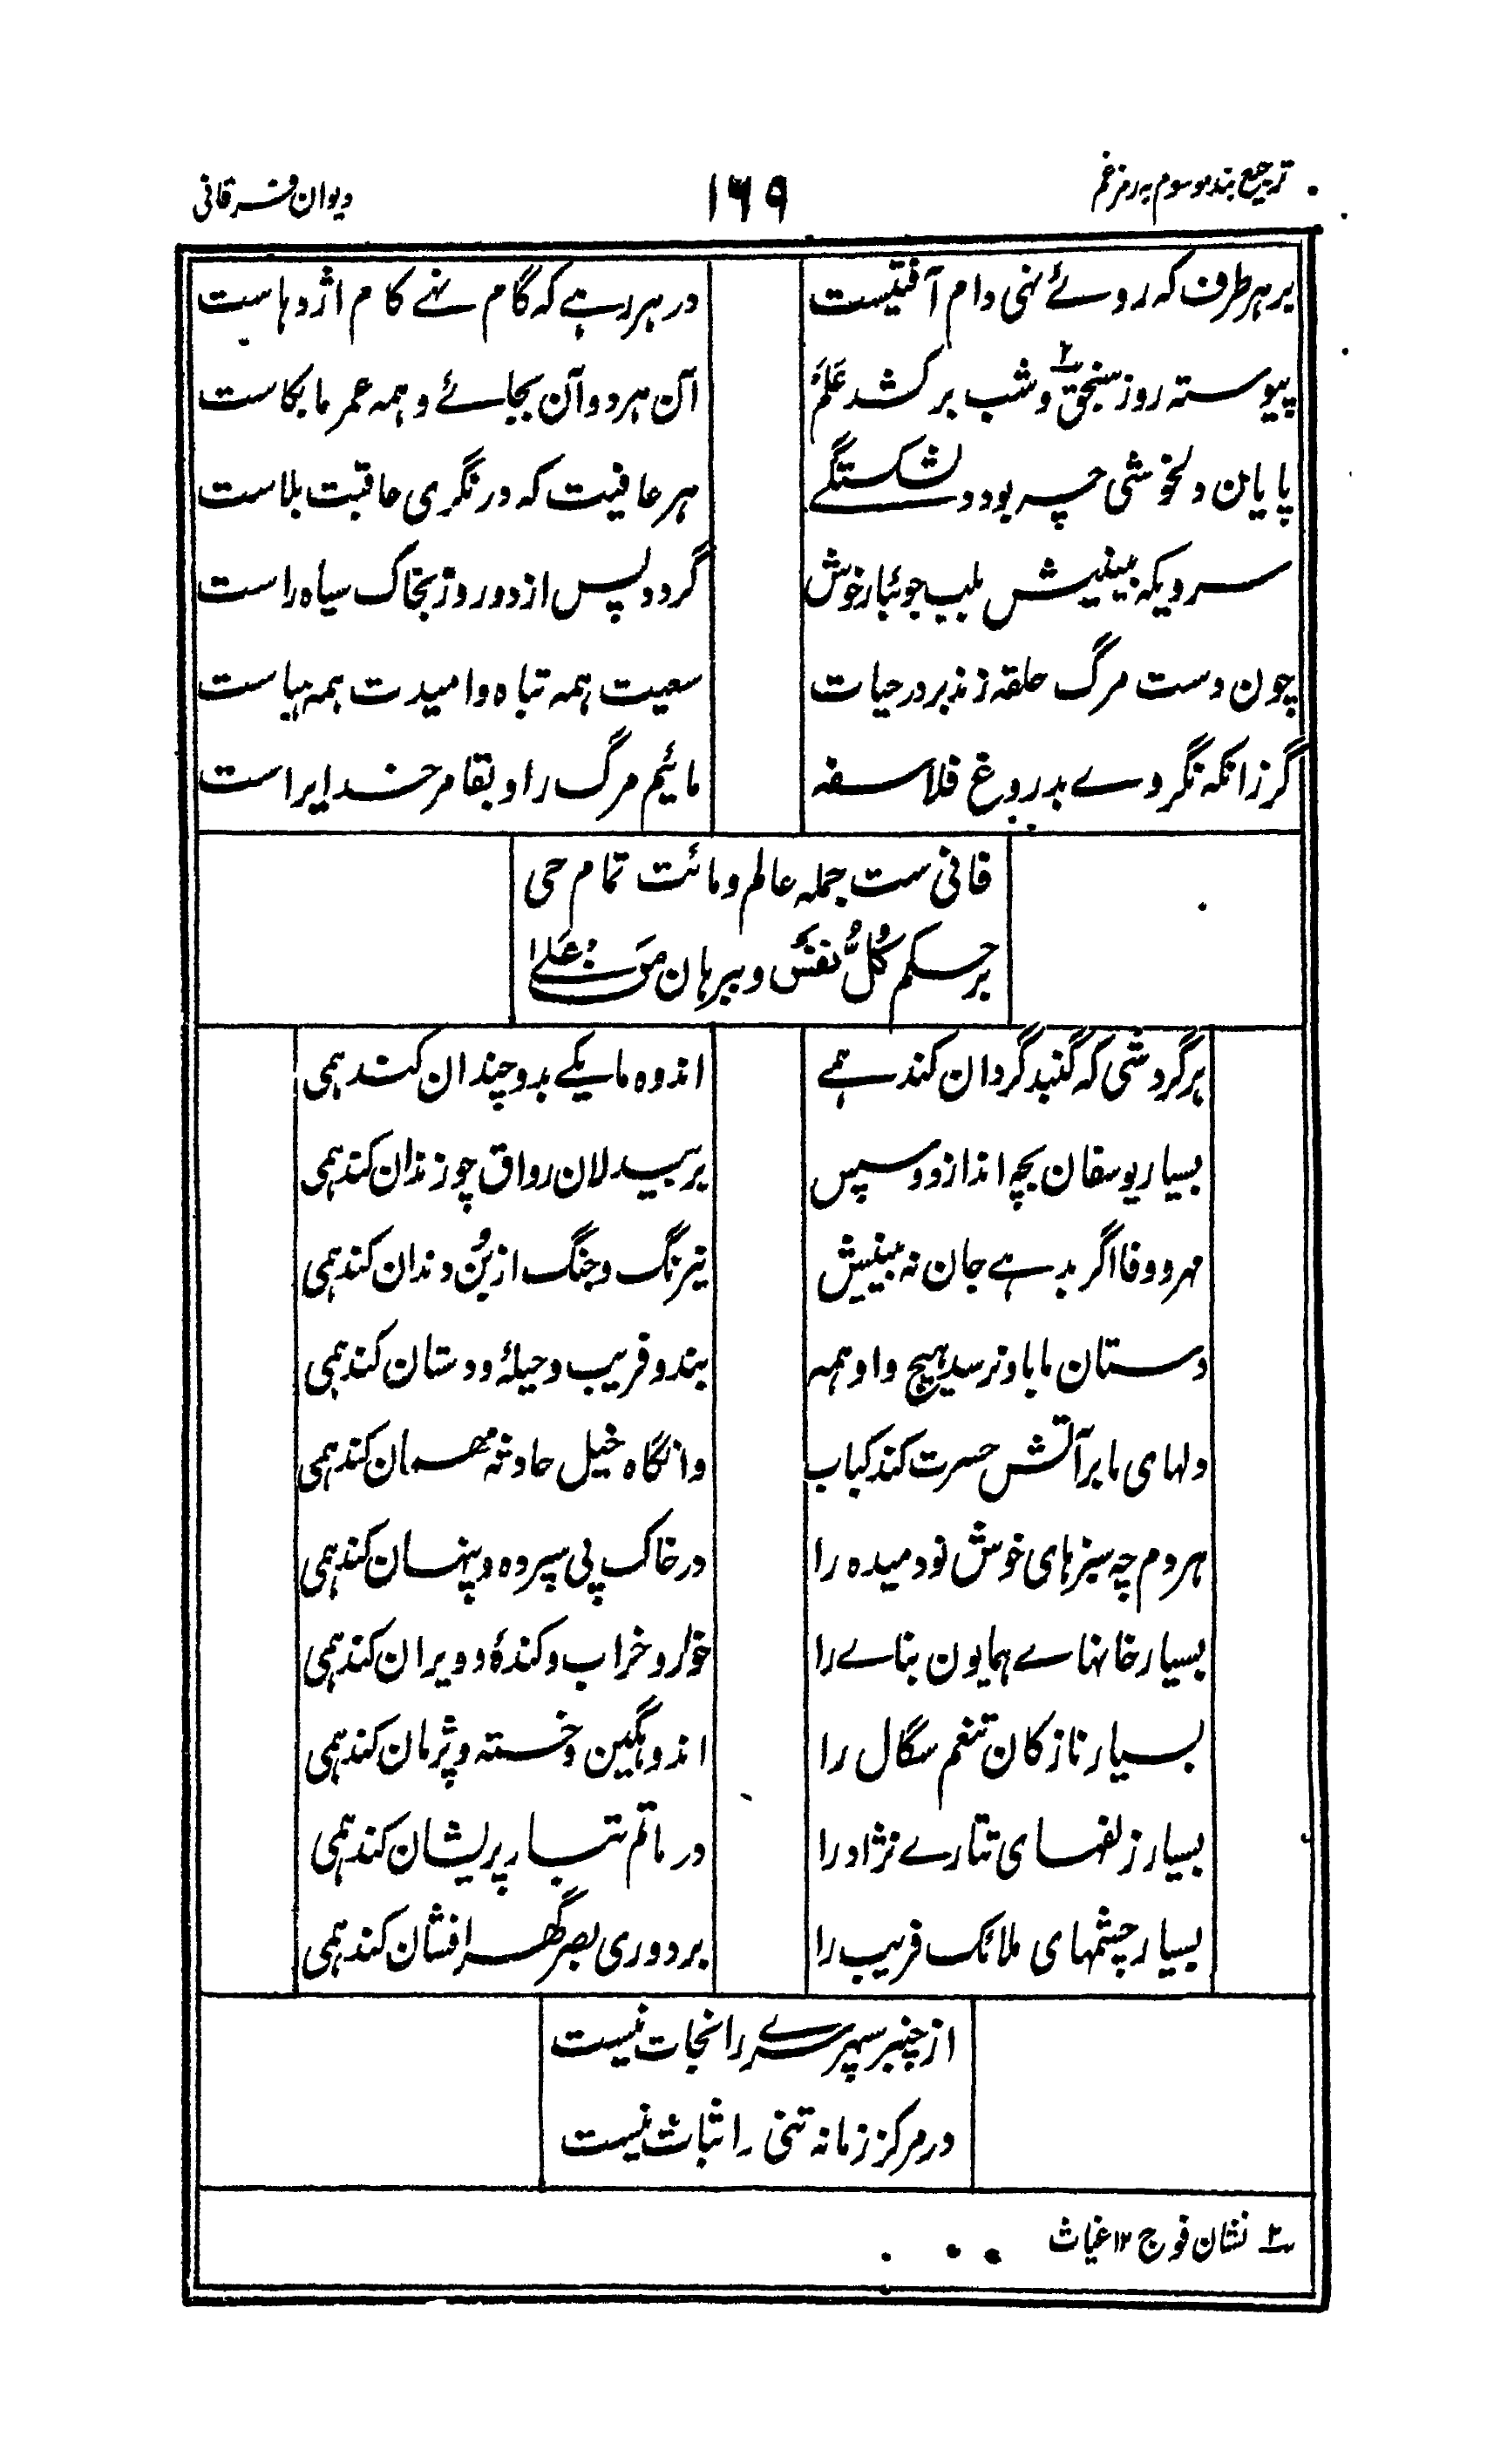 ترجیع بند موسوم به رمز غم
۱۶۹
دیوان فرقانی
بر هر طرف که روئے نہی دام آفتیست
در هر رہے که گام نہے کام اژدہاست
پیوسته روز سنجق ۲ و شب برکشد عَلَم
آن هر دو آن بجائے و همه عمر ما بکاست
پایان دلخوشی چه بود دلشکستگے
هر عافیت که در نگری عاقبت بلاست
سرویکه بینیش بلب جوئبار خوش
گردد پس از دو روز بخاک سیاه راست
چون دست مرگ حلقه زند بر در حیات
سعیت همه تباه و امیدت همه هباست
گر زانکه نگروے بدروغ فلاسفه
مائیم مرگ را و بقا مر خدایراست
فانی ست جمله عالم و مائت تمام حی
بر حکم کُلُّ نفسٍ و ببرهان من علے
هر گردشی که گنبد گردان کند ہمے
اندوه ما یکے بدو چندان کند همی
بسیار یوسفان بچه اندازد و سپس
بر بیدلان رواق چو زندان کند همی
مهر و وفا اگر بدہے جان نه بینیش
نیرنگ و جنگ از بُن دندان کند همی
دستان ما باو نرسد هیچ و او همه
بند و فریب و حیلهٔ و دستان کند همی
دلهای ما بر آتش حسرت کند کباب
وانگاه خیل حادثه مهمان کند همی
هر دم چه سبزهای خوش نو دمیده را
در خاک پی سپرده و پنهان کند همی
بسیار خانهاے همایون بناے را
خوار و خراب و کندهٔ و ویران کند همی
بسیار نازکان تنعم سگال را
اندوهگین و خسته و پژمان کند همی
بسیار زلفهای تتارے نژاد را
در ماتم تبار پریشان کند همی
بسیار چشمهای ملائک فریب را
بر دوری بصر گهر افشان کند همی
از چنبر سپهر سرے را نجات نیست
در مرکز زمانه تنی را ثبات نیست
۲ نشان فوج ۱۲ غیاث